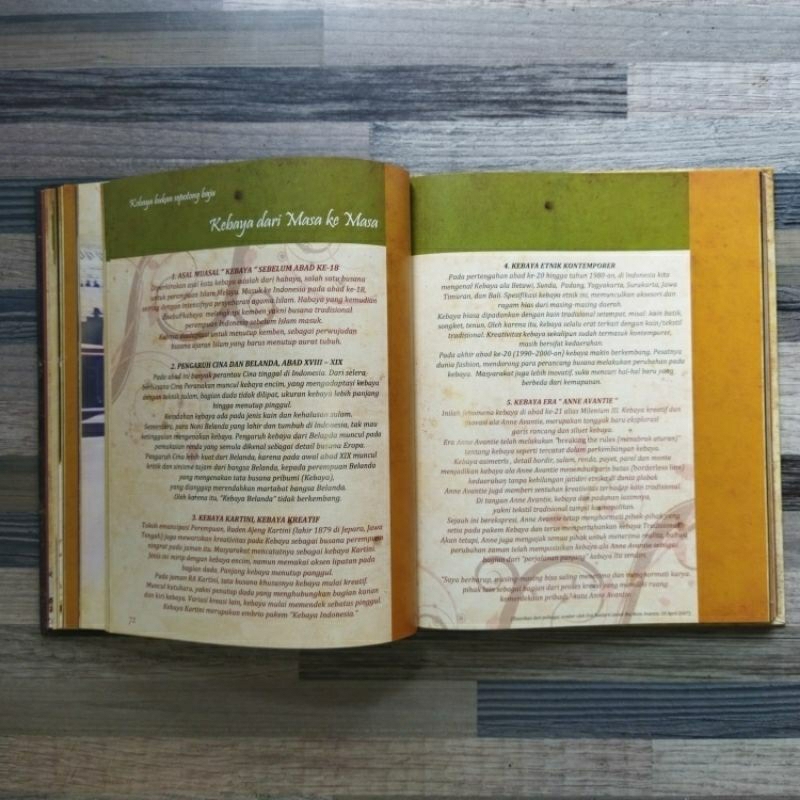 Kebaya bukan sepotong baju
Kebaya dari Masa ke Masa
1. ASAL MUASAL " KEBAYA " SEBELUM ABAD KE-18
Dipercayakan asal kata kebaya adalah dari habaya, salah satu busana
untuk perempuan Islam Melayu. Masuk ke Indonesia pada abad ke-18,
seiring dengan intensifnya penyebaran agama Islam. Habaya yang kemudian
disebut kebaya melengkapi kemben yakni busana tradisional
perempuan Indonesia sebelum Islam masuk.
Karena dianjurkan untuk menutup kemben, sebagai perwujudan
busana ajaran Islam yang harus menutup aurat tubuh.
2. PENGARUH CINA DAN BELANDA, ABAD XVIII – XIX
Pada abad ini banyak perantau Cina tinggal di Indonesia. Dari selera
berbusana Cina Peranakan muncul kebaya encim, yang mengadaptasi kebaya
dengan teknik sulam, bagian dada tidak dilipat, ukuran kebaya lebih panjang
hingga menutup pinggul.
Keindahan kebaya ada pada jenis kain dan kehalusan sulam.
Sementara, para Noni Belanda yang lahir dan tumbuh di Indonesia, tak mau
ketinggalan mengenakan kebaya. Pengaruh kebaya dari Belanda muncul pada
pemakaian renda yang semula dikenal sebagai detail busana Eropa.
Pengaruh Cina lebih kuat dari Belanda, karena pada awal abad XIX muncul
kritik dan sinisme tajam dari bangsa Belanda, kepada perempuan Belanda
yang mengenakan tata busana pribumi (Kebaya),
yang dianggap merendahkan martabat bangsa Belanda.
Oleh karena itu, "Kebaya Belanda" tidak berkembang.
3. KEBAYA KARTINI, KEBAYA KREATIF
Tokoh emancipasi Perempuan, Raden Ajeng Kartini (lahir 1879 di Jepara, Jawa
Tengah) juga mewariskan kreativitas pada Kebaya sebagai busana perempuan
ningrat pada jaman itu. Masyarakat mencatatnya sebagai kebaya Kartini.
Jenis ini mirip dengan kebaya encim, namun memakai aksen lipatan pada
bagian dada. Panjang kebaya menutup panggul.
Pada jaman RA Kartini, tata busana khususnya kebaya mulai kreatif.
Muncul kutubaru, yakni penutup dada yang menghubungkan bagian kanan
dan kiri kebaya. Variasi kreasi lain, kebaya mulai memendek sebatas pinggul.
Kebaya Kartini merupakan embrio pakem "Kebaya Indonesia."
72
4. KEBAYA ETNIK KONTEMPORER
Pada pertengahan abad ke-20 hingga tahun 1980-an, di Indonesia kita
mengenal Kebaya ala Betawi, Sunda, Padang, Yogyakarta, Surakarta, Jawa
Timuran, dan Bali. Spesifikasi kebaya etnik ini, memunculkan aksesori dan
ragam hias dari masing masing daerah.
Kebaya biasa dipadankan dengan kain tradisional setempat, misal: kain batik,
songket, tenun. Oleh karena itu, kebaya selalu erat terkait dengan kain/tekstil
tradisional. Kreativitas kebaya sekalipun sudah termasuk kontemporer,
masih bersifat kedaerahan.
Pada akhir abad ke-20 (1990-2000-an) kebaya makin berkembang. Pesatnya
dunia fashion, mendorong para perancang busana melakukan perubahan pada
kebaya. Masyarakat juga lebih inovatif, suka mencari hal-hal baru yang
berbeda dari kemapanan.
5. KEBAYA ERA " ANNE AVANTIE "
Inilah fenomena kebaya di abad ke-21 alias Milenium III. Kebaya kreatif dan
inovasi ala Anne Avantie, merupakan tonggak baru eksplorasi
garis rancang dan siluet kebaya.
Era Anne Avantie telah melakukan "breaking the rules (menabrak aturan)"
tentang kebaya seperti tercatat dalam perkembangan kebaya.
Kebaya asimetris, detail bordir, sulam, renda, payet, pani dan monte
menjadikan kebaya ala Anne Avantie menembus garis batas (borderless line)
kedaerahan tanpa kehilangan jatidiri etnik di dunia global.
Anne Avantie juga memberi sentuhan kreativitas terhadap kain tradisional.
Di tangan Anne Avantie, kebaya dan padanan lazimnya,
yakni tekstil tradisional tampil kosmopolitan.
Sejauh ini berekspresi, Anne Avantie tetap menghormati pihak-pihak yang
setia pada pakem Kebaya dan terus mempertahankan kebaya Tradisional.
Akan tetapi, Anne juga mengajak semua pihak untuk menerima realita, bahwa
perubahan zaman telah memposisikan kebaya ala Anne Avantie sebagai
bagian dari "perjalanan panjang" kebaya itu sendiri.
"Saya berharap, masing-masing bisa saling menerima dan menghormati karya
pihak lain sebagai bagian dari proses kreasi yang memiliki ruang
kemerdekaan pribadi," kata Anne Avantie.